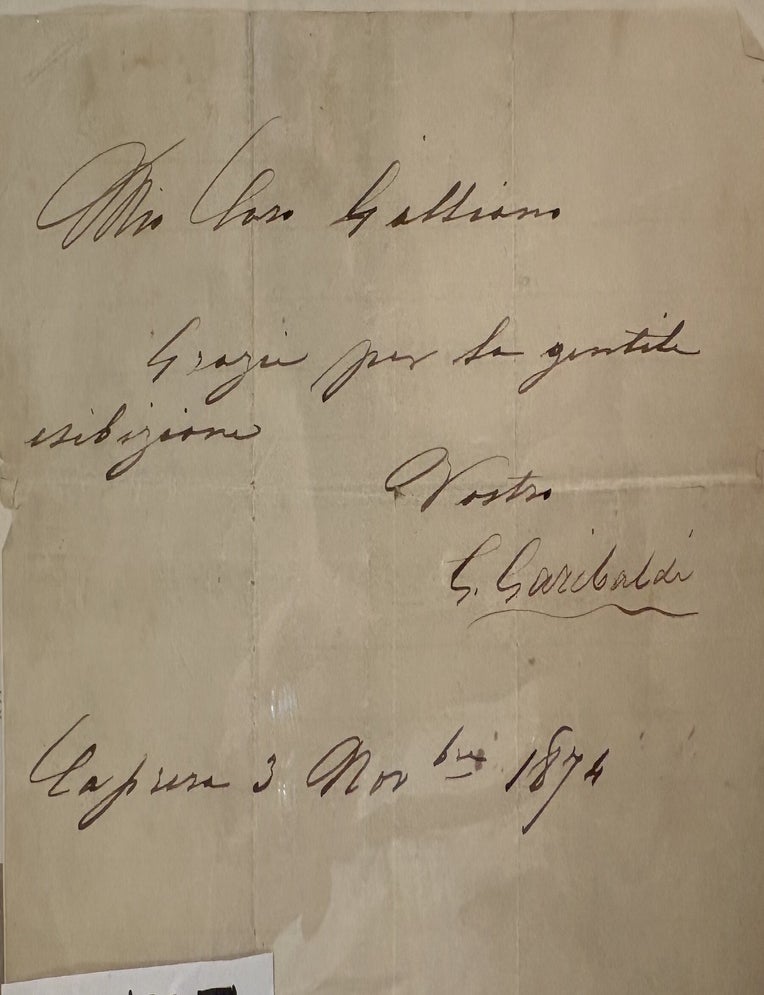 Mio Caro Gattiano
Grazie per la gentile
esibizione
Vostro
G. Garibaldi
Caprera 3 Nov bre 1874